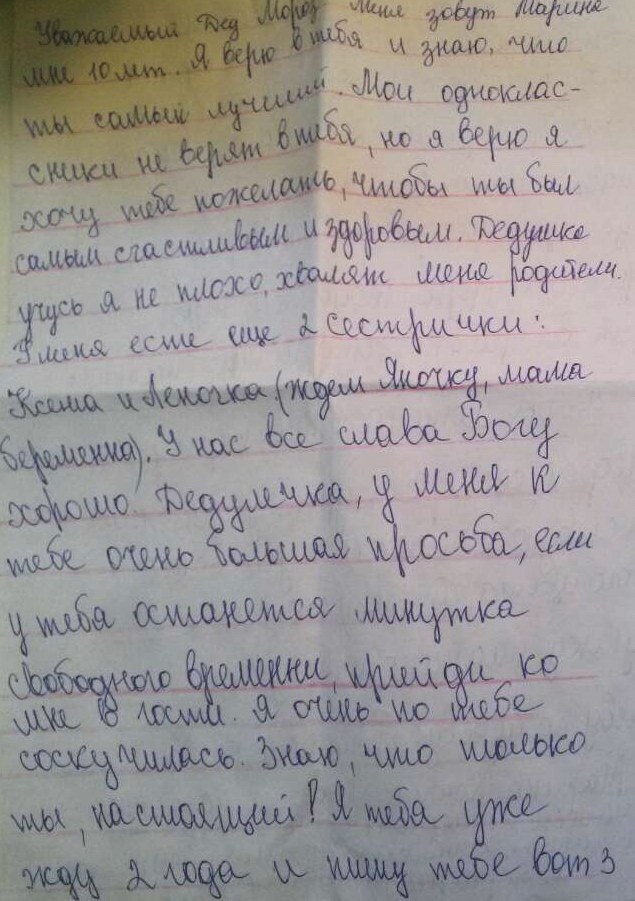 Уважаемый Дед Мороз меня зовут Марина
мне 10 лет. Я верю в тебя и знаю, что
ты самый лучший. Мои одноклас-
сники не верят в тебя, но я верю я
хочу тебе пожелать, чтобы ты был
самым счастливым и здоровым. Дедушка
учусь я не плохо, хвалят меня родители.
У меня есть еще 2 сестрички:
Ксеша и Леночка (ждем Яночку, мама
беременна). У нас все слава Богу
хорошо. Дедулечка, у меня к
тебе очень большая просьба, если
у тебя останется минутка
свободного временни, прийди ко
мне в гости. Я очень по тебе
соскучилась. Знаю, что только
ты, настоящий! Я тебя уже
жду 2 года и пишу тебе вот 3